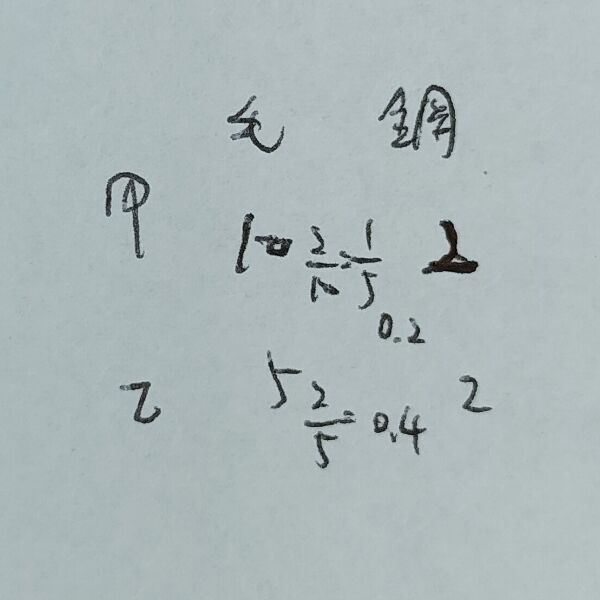 毛 鋼
甲 10 2/10=1/5 2
0.2
乙 5 2/5=0.4 2